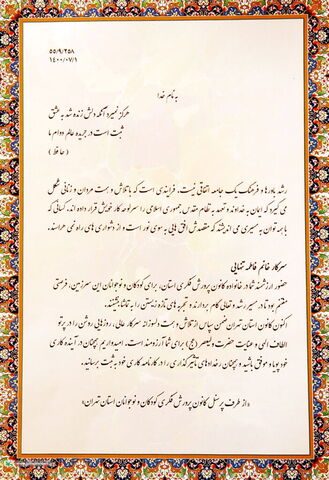 ۵۵/۹/۲۵۸
۱۴۰۰/۰۷/۱
به نام خدا
هرگز نمیرد آنکه دلش زنده شد به عشق
ثبت است در جریده عالم دوام ما
(حافظ)
رشد باورها و فرهنگ یک جامعه اتفاقی نیست، فرایندی است که با تلاش و همت مردان و زنانی شکل
می گیرد که ایمان به خداوند و تعهد به نظام مقدس جمهوری اسلامی را سرلوحه کار خویش قرار داده اند. کسانی که
با همه توان به مسیری می اندیشند که مقصدش افق هایی به سوی نور است و از دشواری های راه نمی هراسند.
سرکار خانم فاطمه تنهایی
حضور ارزشمند شما در خانواده کانون پرورش فکری استان، برای کودکان و نوجوانان این سرزمین، فرصتی
مغتنم بود تا در مسیر رشد و تعالی گام بردارند و تجربه های تازه زیستن را به تماشا بنشینند.
اکنون کانون استان تهران ضمن سپاس از تلاش و همت دلسوزانه سرکار عالی، روزهایی روشن را در پرتو
الطاف الهی و عنایت حضرت ولیعصر (عج) برای شما آرزومند است. امیدواریم همچنان در آینده کاری
خود پویا و موفق باشید و همچنان رخدادهای تأثیرگذاری را در کارنامه کاری خود به ثبت برسانید.
«از طرف پرسنل کانون پرورش فکری کودکان و نوجوانان استان تهران»